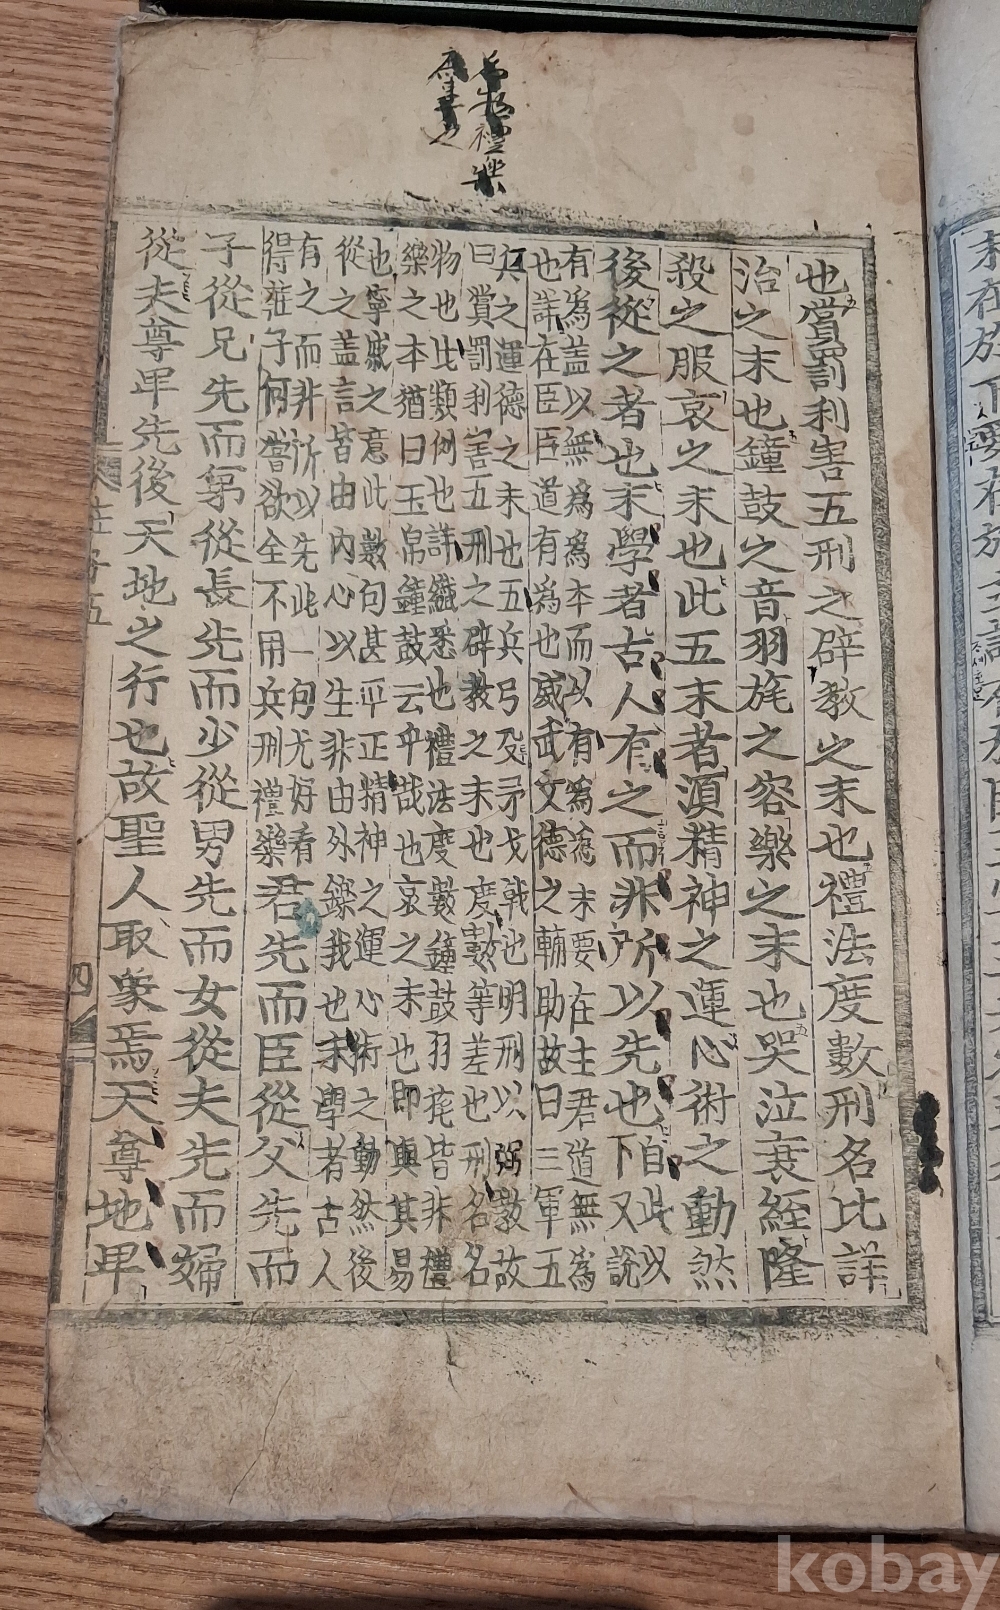 末在於下要在於主詳在於臣三
也賞罰利害五刑之辟教之末也禮法度數刑名比詳
治之末也鐘鼓之音羽旄之容樂之末也哭泣衰絰隆
殺之服哀之末也此五末者須精神之運心術之動然
後從之者也末學者古人有之而非所以先也
自此以
下又說
有為盖以無為為本而以有為為末要在主君道無為
也詳在臣臣道有為也威武文德之輔助故曰三軍五
兵之運德之末也五兵弓殳矛戈戟也明刑以弼教故
曰賞罰利害五刑之辟教之末也度數等差也刑名名
物也比類例也詳纖悉也禮法度數鐘鼓羽旄皆非禮
樂之本猶曰玉帛鐘鼓云乎哉也哀之末也即與其易
也寧戚之意此數句甚平正精神之運心術之動然後
從之盖言皆由內心以生非由外鑠我也末學者古人
有之而非所以先此一句尤好看
得莊子何嘗欲全不用兵刑禮樂
君先而臣從父先而
子從兄先而弟從長先而少從男先而女從夫先而婦
從夫尊卑先後天地之行也故聖人取象焉天尊地卑
莊子五
四
禮樂
kobay